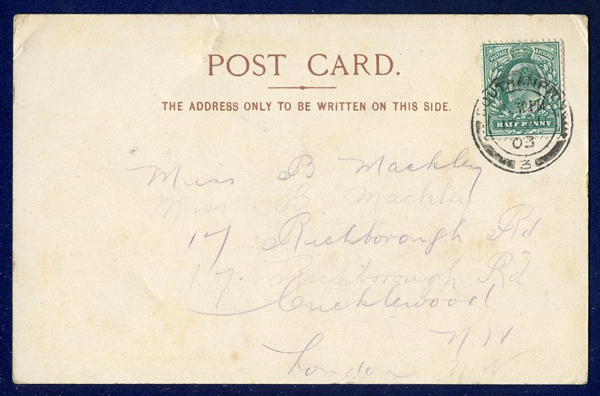 POST CARD.
THE ADDRESS ONLY TO BE WRITTEN ON THIS SIDE.
HALFPENNY
SOUTHAMPTON
03
3
Miss B Mackley
Miss B Mackley
17 Richborough Rd
17 Richborough Rd
Cricklewood
London N W
N W